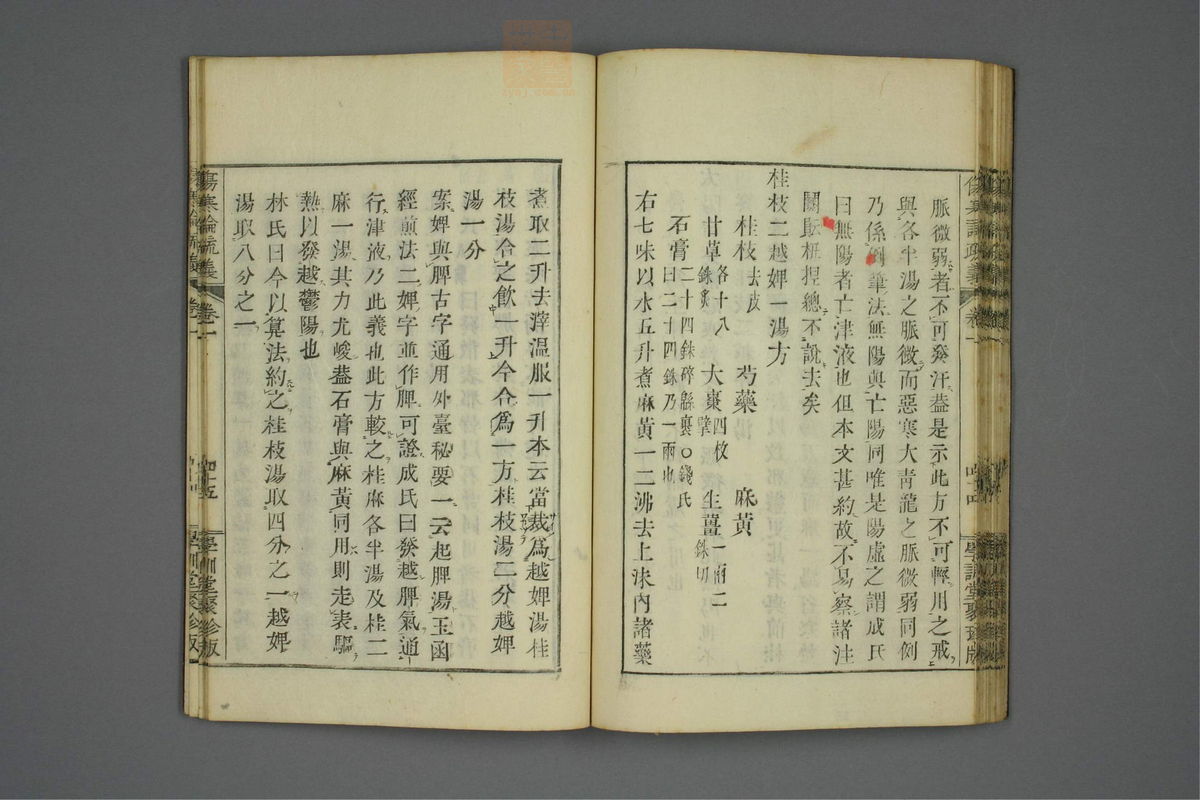 脈微弱者不可發汗蓋是示此方不可輕用之戒
與各半湯之脈微而惡寒大青龍之脈微弱同例
乃係倒筆法無陽與亡陽同唯是陽虛之謂成氏
曰無陽者亡津液也但本文甚約故不易察諸注
鬬䟰桎捏總不說去矣
桂枝二越婢一湯方
桂枝去皮 芍藥 麻黃
甘草各十八銖炙 大棗四枚擘 生薑一兩二銖切
石膏二十四銖碎緜裹〇錢氏曰二十四銖乃一兩也
右七味以水五升煮麻黃一二沸去上沫內諸藥
煮取二升去滓溫服一升本云當裁爲越婢湯桂
枝湯合之飲一升今合爲一方桂枝湯二分越婢
湯一分
案婢與脾古字通用外臺秘要一云起脾湯玉函
經煎法二婢字並作脾可證成氏曰發越脾氣通
行津液乃此義也此方較之桂麻各半湯及桂二
麻一湯其力尤峻蓋石膏與麻黃同用則走表驅
熱以發越鬱陽也
林氏曰今以算法約之桂枝湯取四分之一越婢
湯取八分之一
傷寒論疏義
卷一
四十五
學訓堂聚珍版